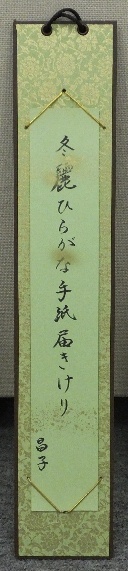 冬麗ひらがな手紙届きけり
昌子